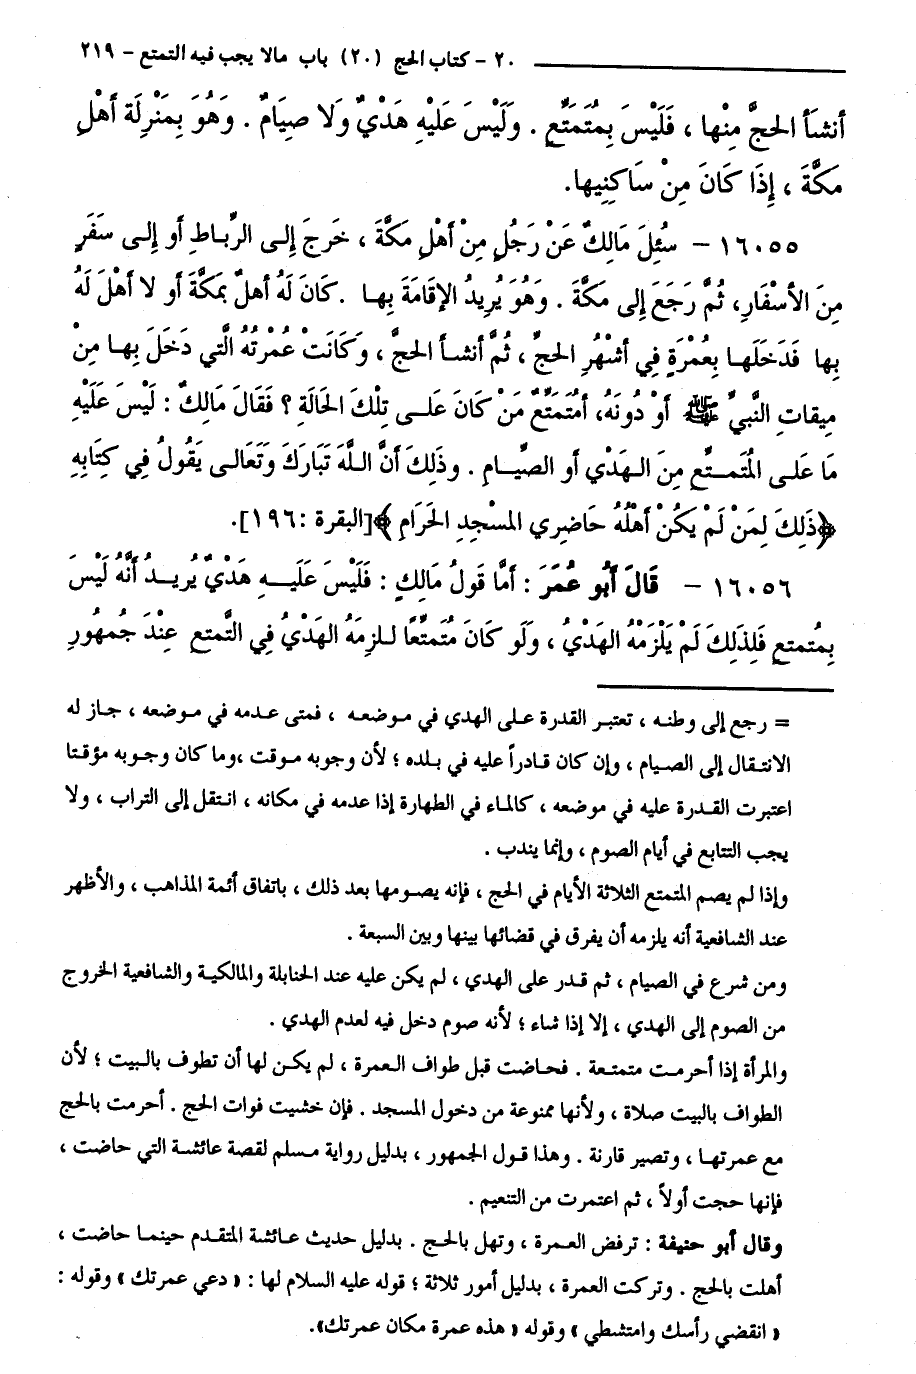 ٢٠ - كتاب الحج (٢٠) باب مالا يجب فيه التمتع - ٢١٩
أنشَأَ الحجَّ مِنْها ، فَلَيْسَ بِمُتَمَتِّعٍ . وَلَيْسَ عَلَيْهِ هَدْيٌ وَلَا صِيَامٌ . وَهُوَ بِمَنْزِلَةِ أَهْلِ
مَكَّةَ ، إِذَا كَانَ مِنْ سَاكِنِيها.
١٦٠٥٥ - سُئِلَ مَالِكٌ عَنْ رَجُلٍ مِنْ أَهْلِ مَكَّةَ ، خَرَجَ إِلى الرِّباطِ أَو إِلى سَفَرٍ
مِنَ الأَسْفَارِ، ثُمَّ رَجَعَ إِلى مَكَّةَ . وَهُوَ يُرِيدُ الإقامَةَ بِها .كَانَ لَهُ أهلٌ بِمَكَّةَ أَو لا أَهْلَ لَهُ
بِها فَدَخَلَها بِعُمْرَةٍ فِي أشْهُرِ الحجِّ ، ثُمَّ أنشأ الحجَّ ، وَكَانَتْ عُمْرَتُهُ الَّتي دَخَلَ بِها مِنْ
مِيقاتِ النَّبِيِّ ﷺ أَوْ دُونَهُ، أَمُتَمَتِّعٌ مَنْ كَانَ عَلـى تِلْكَ الحَالَةِ ؟ فَقَالَ مَالِكٌ : لَيْسَ عَلَيْهِ
مَا عَلَى الْمُتَمتِّعِ مِنَ الهَدْيِ أو الصِّيامِ . وذَلِكَ أنَّ اللَّهَ تَبَارَكَ وَتَعَالى يَقُولُ فِي كِتَابِهِ
﴿ذَلِكَ لِمَنْ لَمْ يَكُنْ أَهْلُهُ حَاضِرِي المسْجِدِ الحَرَامِ ﴾[البقرة :١٩٦].
١٦٠٥٦ - قَالَ أَبُو عُمَرَ : أمَّا قَولُ مَالِكٍ : فَلَيْسَ عَلَيـهِ هَدْيٌ يُرِيـدُ أنَّهُ لَيْسَ
بِمُتمتعٍ فَلِذَلِكَ لَمْ يَلْزَمْهُ الهَدْيُ ، ولَو كَانَ مُتَمتِّعًا للزِمَهُ الهَدْيُ فِي التَّمتعِ عِنْدَ جُمهُورِ
= رجع إلى وطنـه ، تعتبـر القدرة على الهدي في مـوضعـه ، فمتى عدمـه في مـوضعـه ، جـاز له
الانتـقال إلى الصيـام ، وإن كان قـادراً عليه في بـلده ؛ لأن وجوبه مـوقت ،ومـا كان وجـوبه مؤقـتا
اعتبـرت القـدرة عليه في موضعه ، كالمـاء في الطهارة إذا عدمـه في مكانه ، انتـقل إلى التراب ، ولا
يجب التتابع في أيام الصوم ، وإنما يندب .
وإذا لم يصم المتمتع الثلاثة الأيام في الحج ، فإنه يصـومها بعد ذلك ، باتفاق أئمة المذاهب ، والأظهر
عند الشافعية أنه يلزمه أن يفرق في قضائها بينها وبين السبعة .
ومن شرع في الصيام ، ثم قـدر على الهدي ، لم يكن عليه عند الحنابلة والمالكيـة والشافعية الخروج
من الصوم إلى الهدي ، إلا إذا شاء ؛ لأنه صوم دخل فيه لعدم الهدي .
والمرأة إذا أحرمـت متمتـعة . فحـاضت قبل طواف العـمرة ، لم يكـن لها أن تطوف بالبيت ؛ لأن
الطواف بالبيت صلاة ، ولأنها ممنوعة من دخول المسجد . فإن خشيت فوات الحج . أحرمت بالحج
مع عمرتهـا ، وتصير قارنة . وهذا قـول الجمهور ، بدليل رواية مـسلم لقصة عائشـة التي حاضت ،
فإنها حجت أولاً ، ثم اعتمرت من التنعيم .
وقال أبو حنيفة : ترفض العـمرة ، وتهل بالحـج . بدليل حديث عـائشة المتقدم حينمـا حاضت ،
أهلت بالحج . وتركت العمرة ، بدليل أمور ثلاثة ؛ قوله عليه السلام لها : « دعي عمرتك » وقوله :
« انقضي رأسك وامتشطي » وقوله « هذه عمرة مكان عمرتك».